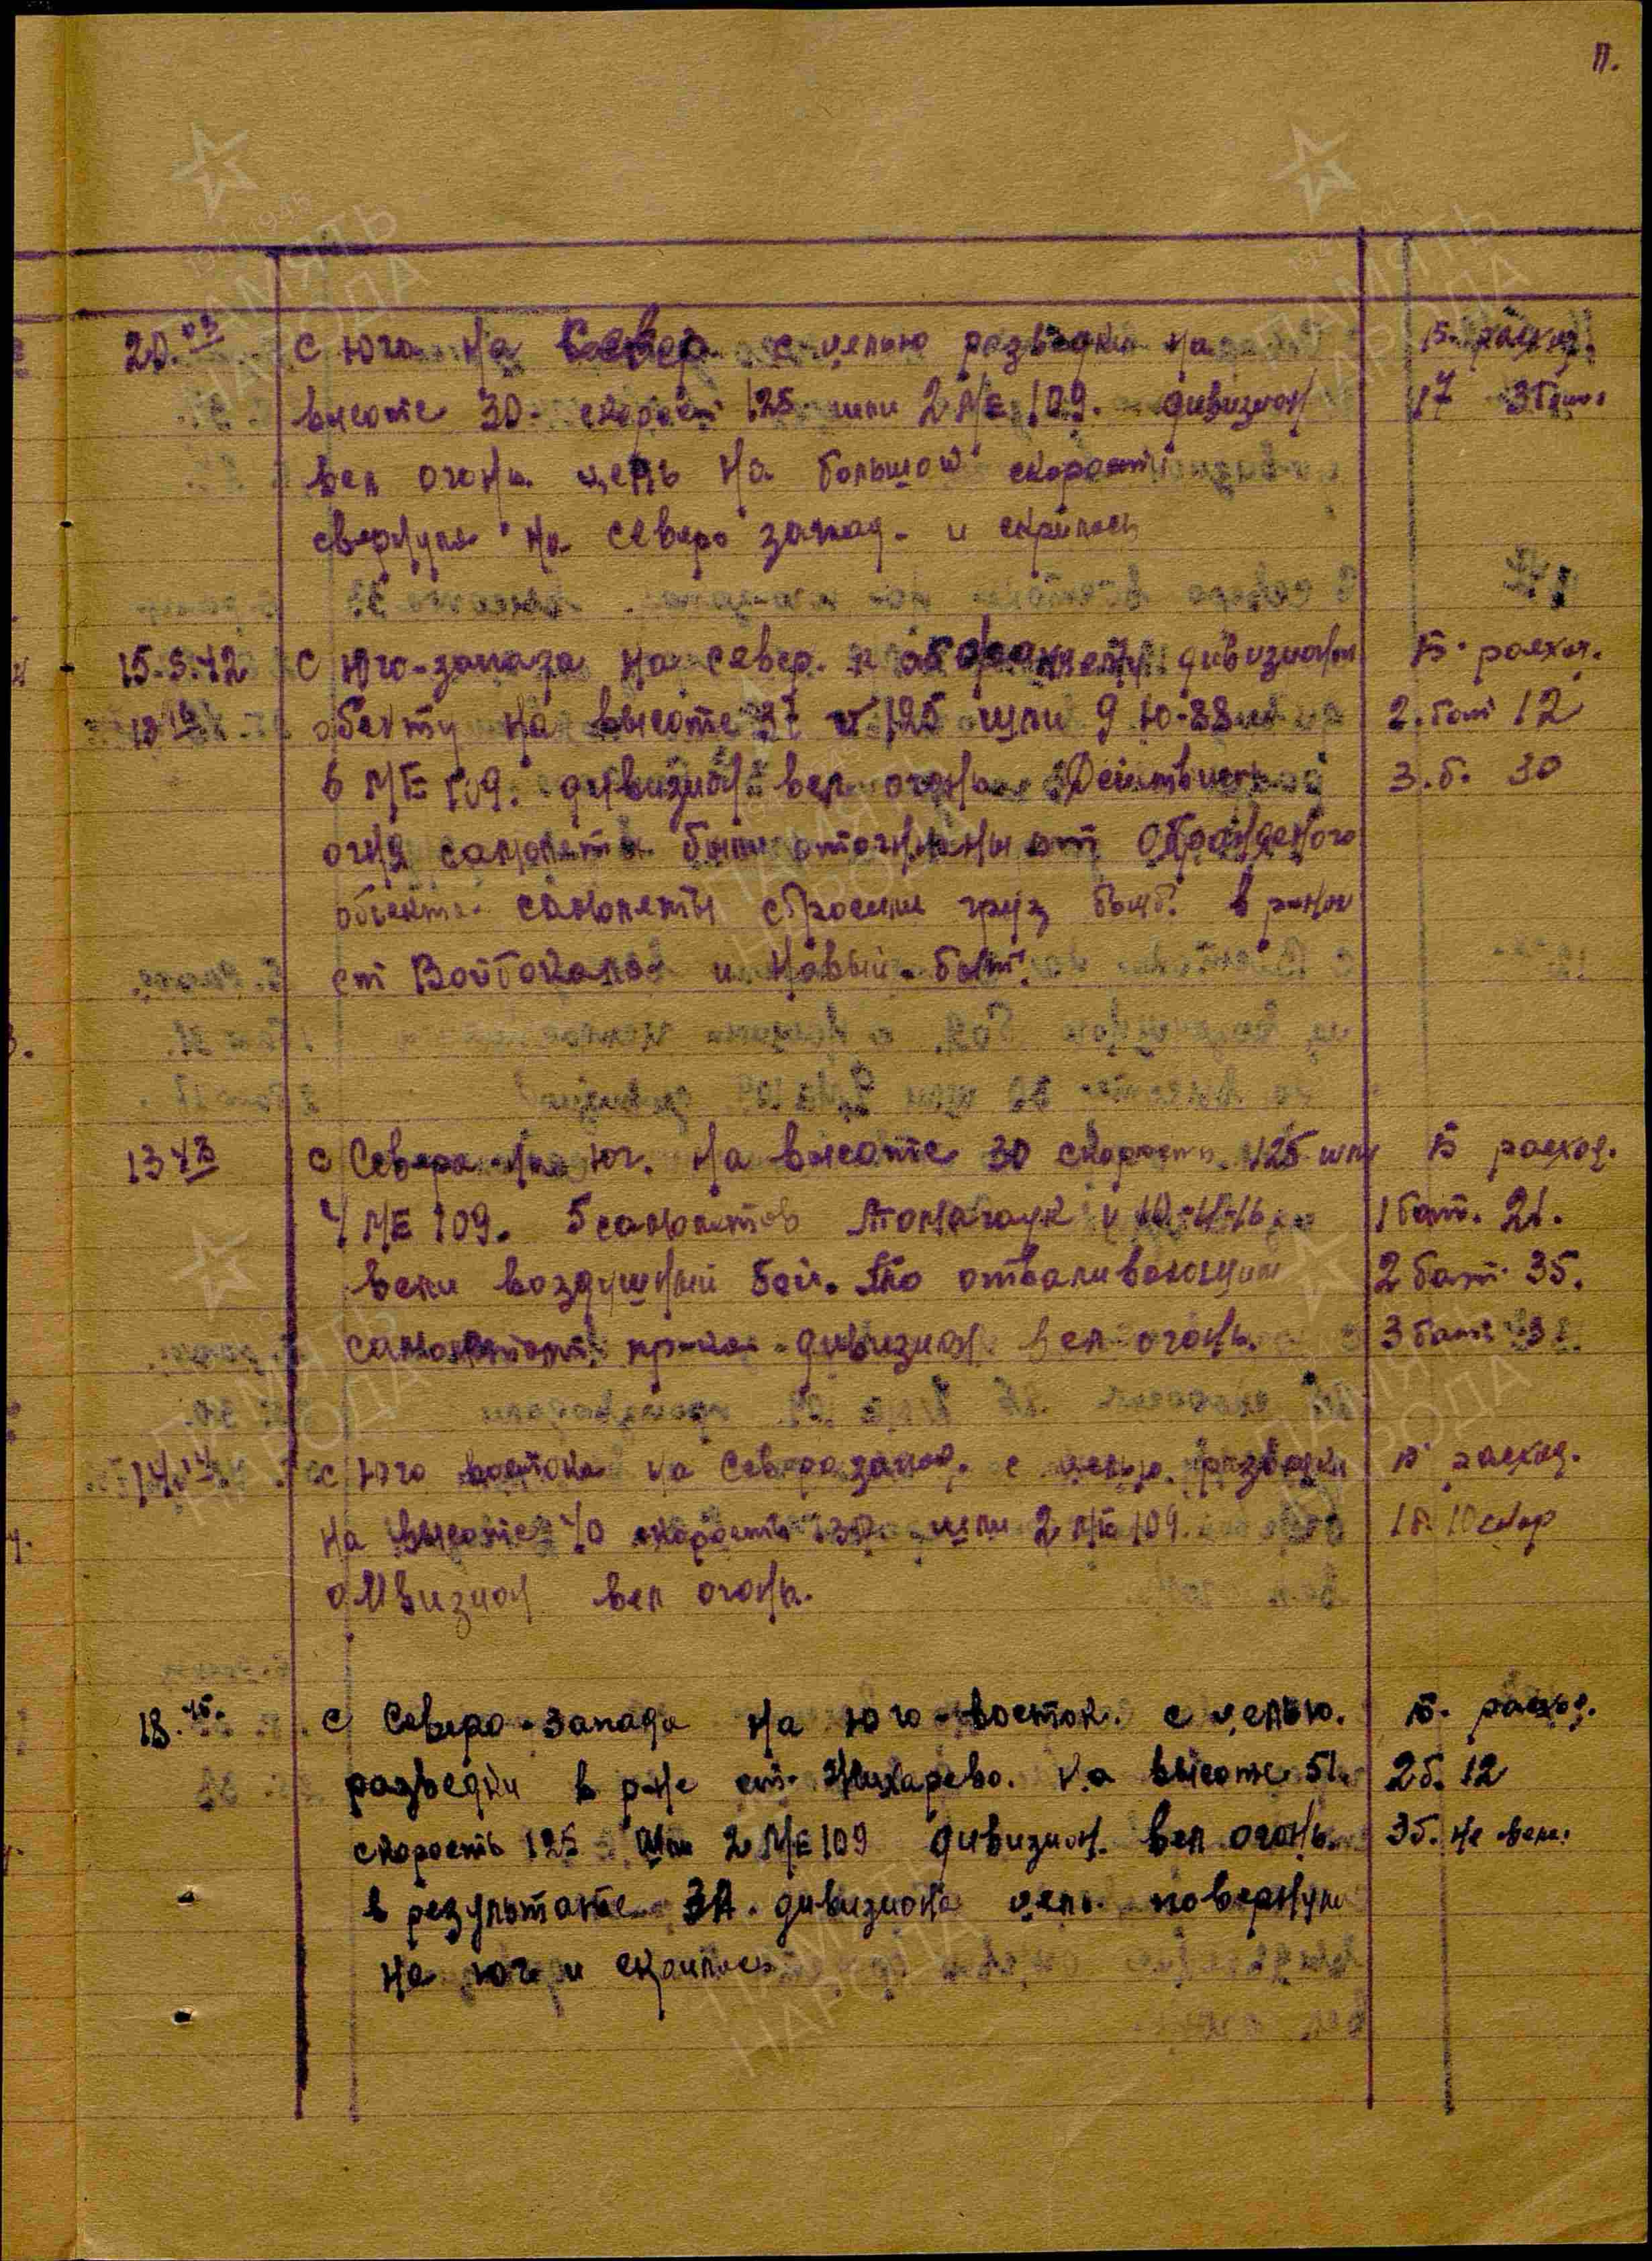 11.
20.03 С юга на Север с целью разведки на Б. расход.
высоте 30. скорость 125 шли 2 МЕ 109. дивизион 17 3 бат.
вел огонь. цель на большой скорости
свернула на северо запад. и скрылась
15.5.42 С юго-запада на север. к обороняему дивизионом Б. расход.
обекту на высоте 37 v 125 шли 9 Ю-88 и 2. бат 12
6 МЕ 109. дивизион вел огонь. Действием 3. б. 30
огня самолеты были отогнаны от
объекта. самолеты сбросили груз бомб. в районе
ст Войбокало и Новый-быт.
13 43 С Севера на юг. На высоте 30 скорость 125 шли Б расход.
4 МЕ 109. 5 самолетов Томагаук и 1 бат. 21.
вели воздушный бой. По отваливающим 2 бат. 35.
самолетам пр-ка дивизион вел огонь. 3 бат.
14. С юго востока на Северозапад. с целью разведки Б расход.
На высоте 40 скорость 130 шли 2 МЕ 109. 18.
дивизион вел огонь.
18.45. С Северо-запада на юго-восток. с целью. Б. расход.
разведки в р-не ст. Жихарево. на высоте 51. 2б. 12
скорость 125 шли 2 МЕ 109 дивизион. вел огонь. 3б. не вела.
в результате ЗА. дивизиона цель повернула
на юг и скрылась
ПАМЯТЬ
НАРОДА